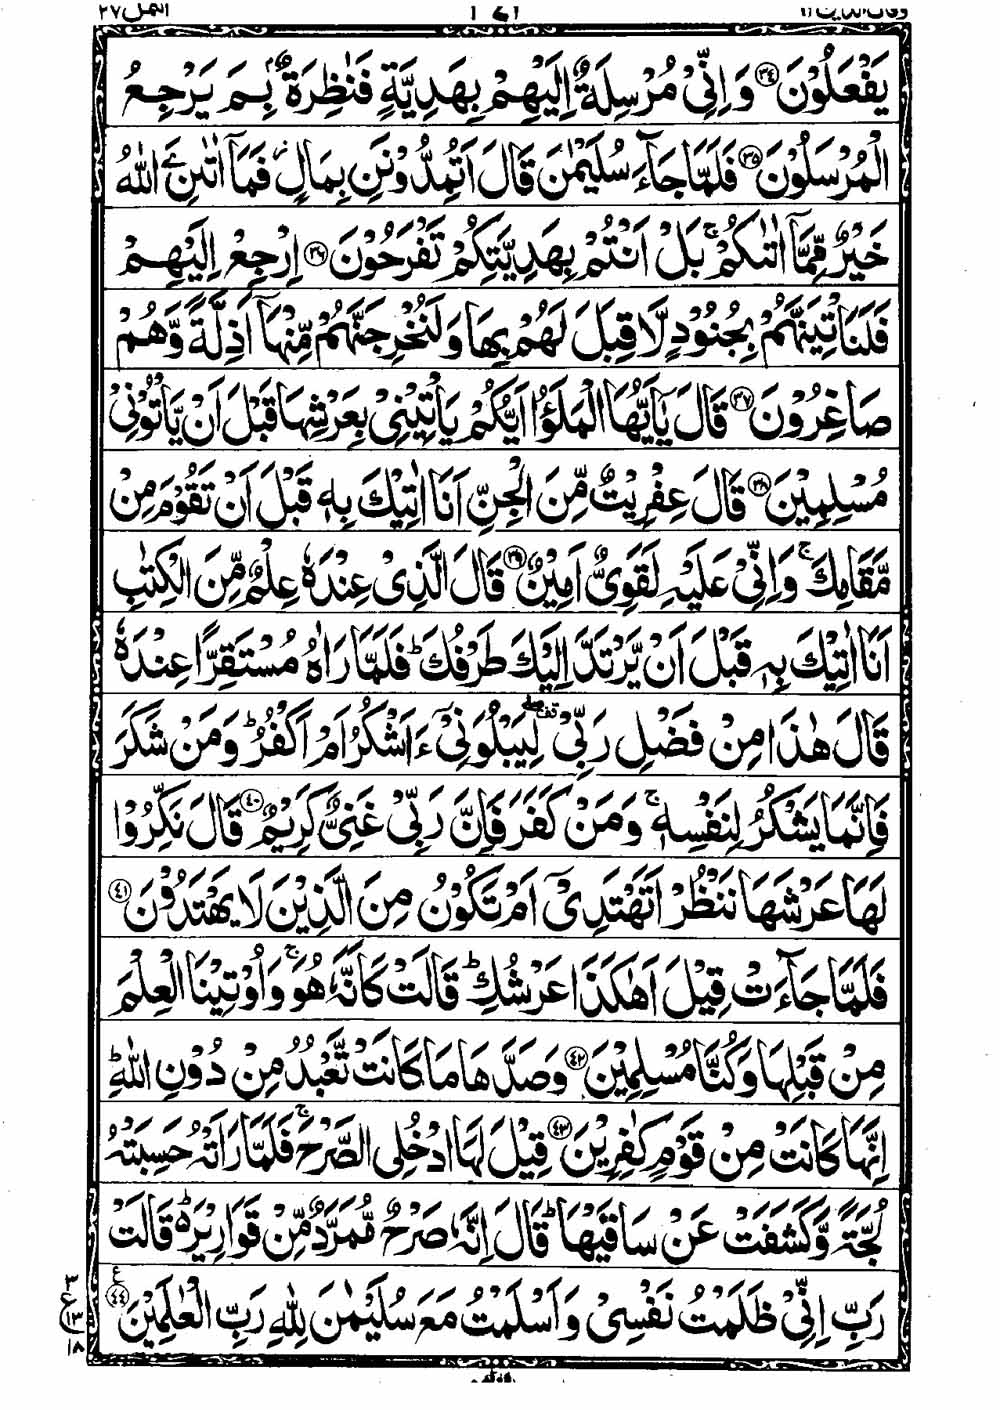 النمل ٢٧
يَفْعَلُوْنَ ﴿٣٤﴾ وَ اِنِّيْ مُرْسِلَةٌ اِلَيْهِمْ بِهَدِيَّةٍ فَنٰظِرَةٌۢ بِمَ يَرْجِعُ
الْمُرْسَلُوْنَ ﴿٣٥﴾ فَلَمَّا جَآءَ سُلَيْمٰنَ قَالَ اَتُمِدُّوْنَنِ بِمَالٍ ؗ فَمَاۤ اٰتٰىنِۦَ اللّٰهُ
خَيْرٌ مِّمَّاۤ اٰتٰىكُمْ ۚ بَلْ اَنْتُمْ بِهَدِيَّتِكُمْ تَفْرَحُوْنَ ﴿٣٦﴾ اِرْجِعْ اِلَيْهِمْ
فَلَنَاْتِيَنَّهُمْ بِجُنُوْدٍ لَّا قِبَلَ لَهُمْ بِهَا وَ لَنُخْرِجَنَّهُمْ مِّنْهَاۤ اَذِلَّةً وَّ هُمْ
صَاغِرُوْنَ ﴿٣٧﴾ قَالَ يٰۤاَيُّهَا الْمَلَؤُا اَيُّكُمْ يَاْتِيْنِيْ بِعَرْشِهَا قَبْلَ اَنْ يَّاْتُوْنِيْ
مُسْلِمِيْنَ ﴿٣٨﴾ قَالَ عِفْرِيْتٌ مِّنَ الْجِنِّ اَنَا اٰتِيْكَ بِهٖ قَبْلَ اَنْ تَقُوْمَ مِنْ
مَّقَامِكَ ۚ وَ اِنِّيْ عَلَيْهِ لَقَوِيٌّ اَمِيْنٌ ﴿٣٩﴾ قَالَ الَّذِيْ عِنْدَهٗ عِلْمٌ مِّنَ الْكِتٰبِ
اَنَا اٰتِيْكَ بِهٖ قَبْلَ اَنْ يَّرْتَدَّ اِلَيْكَ طَرْفُكَ ؕ فَلَمَّا رَاٰهُ مُسْتَقِرًّا عِنْدَهٗ
قَالَ هٰذَا مِنْ فَضْلِ رَبِّيْ لِيَبْلُوَنِيْۤ ءَاَشْكُرُ اَمْ اَكْفُرُ ؕ وَ مَنْ شَكَرَ
فَاِنَّمَا يَشْكُرُ لِنَفْسِهٖ ۚ وَ مَنْ كَفَرَ فَاِنَّ رَبِّيْ غَنِيٌّ كَرِيْمٌ ﴿٤٠﴾ قَالَ نَكِّرُوْا
لَهَا عَرْشَهَا نَنْظُرْ اَتَهْتَدِيْۤ اَمْ تَكُوْنُ مِنَ الَّذِيْنَ لَا يَهْتَدُوْنَ ﴿٤١﴾
فَلَمَّا جَآءَتْ قِيْلَ اَهٰكَذَا عَرْشُكِ ؕ قَالَتْ كَاَنَّهٗ هُوَ ۚ وَ اُوْتِيْنَا الْعِلْمَ
مِنْ قَبْلِهَا وَ كُنَّا مُسْلِمِيْنَ ﴿٤٢﴾ وَ صَدَّهَا مَا كَانَتْ تَّعْبُدُ مِنْ دُوْنِ اللّٰهِ ؕ
اِنَّهَا كَانَتْ مِنْ قَوْمٍ كٰفِرِيْنَ ﴿٤٣﴾ قِيْلَ لَهَا ادْخُلِي الصَّرْحَ ۚ فَلَمَّا رَاَتْهُ حَسِبَتْهُ
لُجَّةً وَّ كَشَفَتْ عَنْ سَاقَيْهَا ؕ قَالَ اِنَّهٗ صَرْحٌ مُّمَرَّدٌ مِّنْ قَوَارِيْرَ ؕ۬ قَالَتْ
رَبِّ اِنِّيْ ظَلَمْتُ نَفْسِيْ وَ اَسْلَمْتُ مَعَ سُلَيْمٰنَ لِلّٰهِ رَبِّ الْعٰلَمِيْنَ ﴿٤٤﴾
٣
ع
١٣
١٨